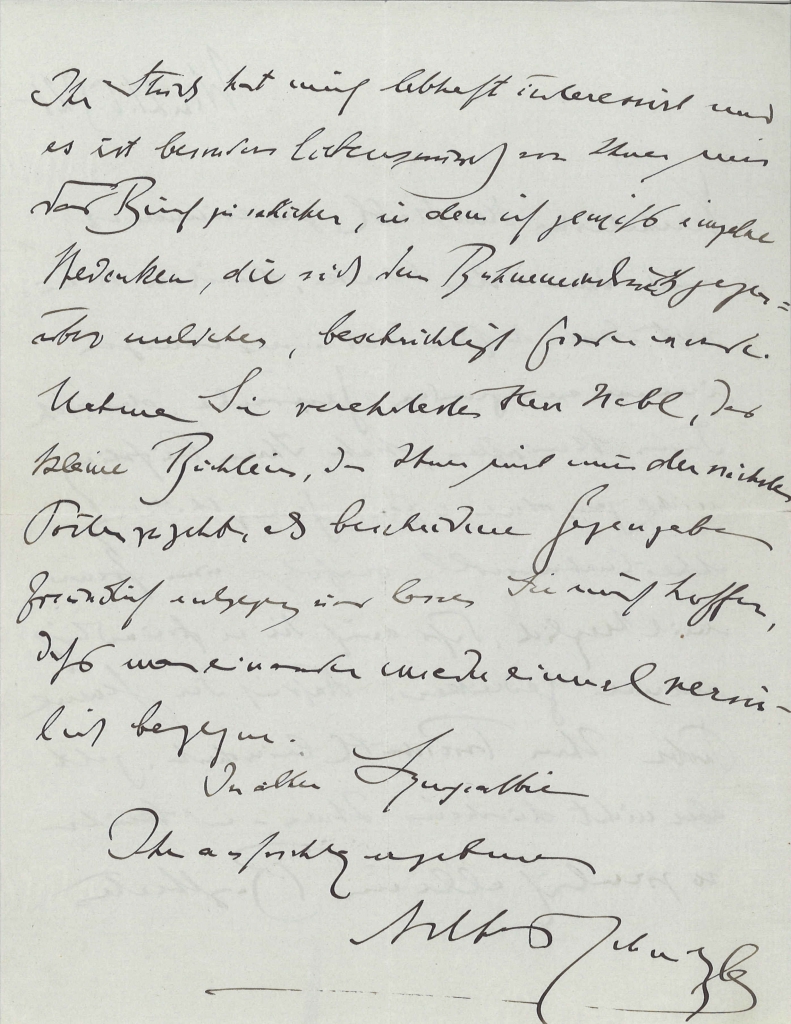 Ihr Stück hat mich lebhaft interessirt und
es ist besonders liebenswürdig von Ihnen mir
das Buch zu schicken, in dem ich gewiß einzelne
Bedenken, die sich dem Bühneneindruck gegen=
über melden, beschwichtigt finden werde.
Nehmen Sie verehrtester Herr Nabl, das
kleine Büchlein, das Ihnen mit der nächsten
Post zugeht, als bescheidene Gegengabe
freundlich entgegen und lassen Sie mich hoffen,
daß man einander wieder einmal persön-
lich begegne.
In alter Sympathie
Ihr aufrichtig ergebener
Arthur Schnitzler